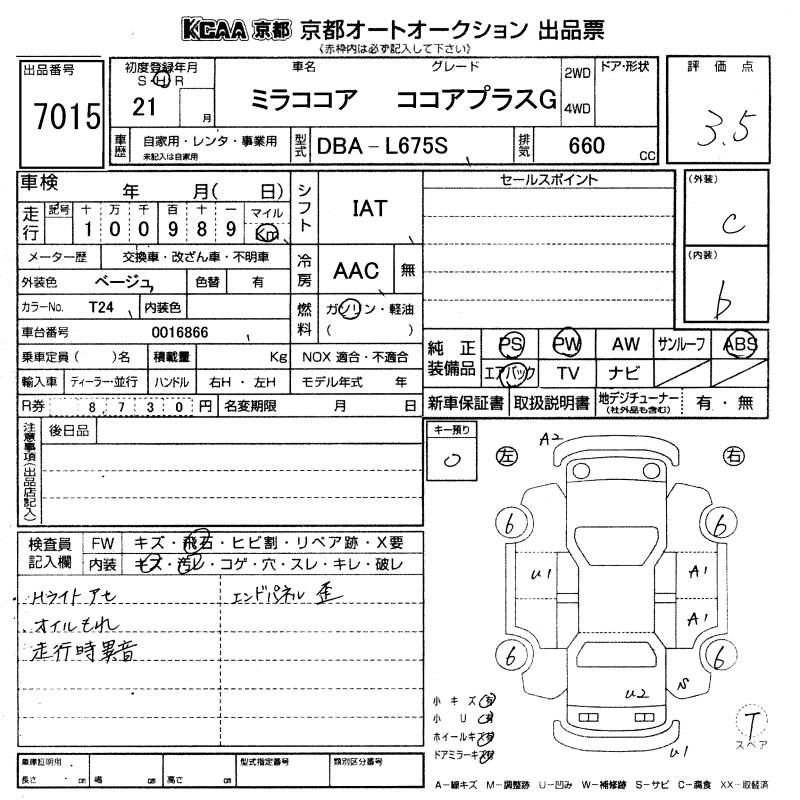 KCAA 京都 京都オートオークション 出品票
《赤枠内は必ず記入して下さい》
出品番号
7015
初度登録年月
S・H・R
21 月
車名 グレード
ミラココア ココアプラスG
2WD
4WD
ドア・形状
評価点
3.5
車歴
自家用・レンタ・事業用
未記入は自家用
型式
DBA-L675S
排気
660 CC
車検 年 月( 日)
走行
記号 十 万 千 百 十 一 マイル
1 0 0 9 8 9 Km
メーター歴 交換車・改ざん車・不明車
外装色 ベージュ 色替 有
カラーNo. T24 内装色
車台番号 0016866
乗車定員( )名 積載量 Kg
輸入車 ディーラー・並行 ハンドル 右H・左H
R券 8,730円 名変期限 月 日
シフト
IAT
冷房
AAC 無
燃料
ガソリン・軽油
( )
NOX 適合・不適合
モデル年式 年
セールスポイント
(外装)
C
(内装)
b
純正装備品
PS PW AW サンルーフ ABS
エアバック TV ナビ
新車保証書 取扱説明書 地デジチューナー 有・無
(社外品も含む)
注意事項(出品店記入)
後日品
キー預り
0
検査員記入欄
FW キズ・飛石・ヒビ割・リペア跡・X要
内装 キズ・汚レ・コゲ・穴・スレ・キレ・破レ
Hライトアセ
オイルもれ
走行時異音
エンドパネル歪
左 右
A2
6 6
U1 A1
A1
6 6
U2 S
U1
小キズ 有
小U 有
ホイールキズ 有
ドアミラーキズ 有
T
スペア
車庫証明用
長さ cm 幅 cm 高さ cm
型式指定番号
類別区分番号
A-線キズ M-調整跡 U-凹み W-補修跡 S-サビ C-腐食 XX-取替済